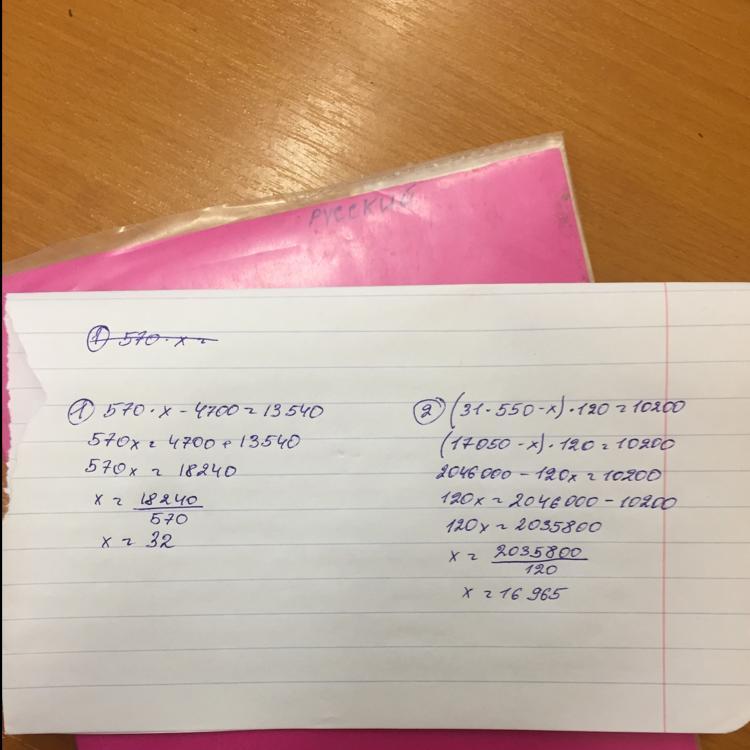 РУССКИЙ
① 570 · x =
① 570 · x - 4700 = 13540
570x = 4700 + 13540
570x = 18240
x = 18240/570
x = 32
② (31 · 550 - x) · 120 = 10200
(17050 - x) · 120 = 10200
2046000 - 120x = 10200
120x = 2046000 - 10200
120x = 2035800
x = 2035800/120
x = 16965